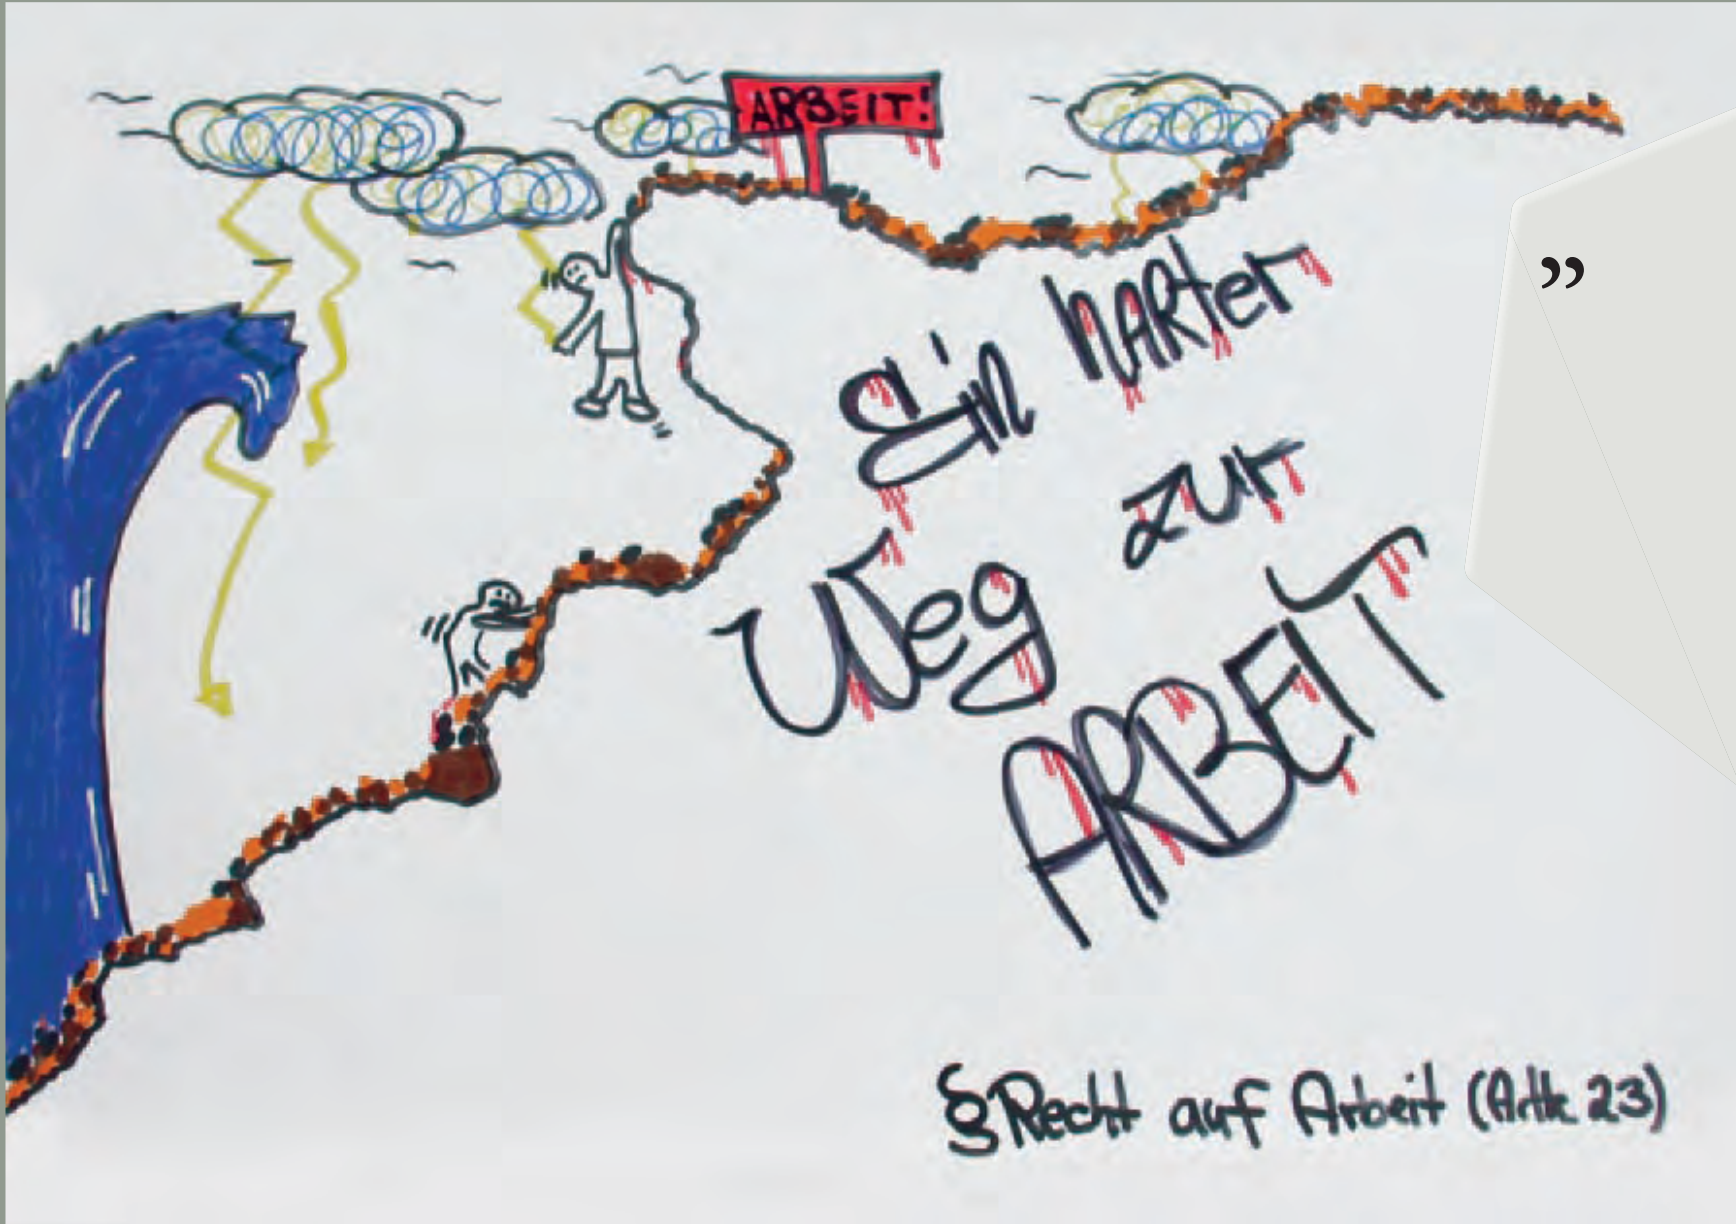 ARBEIT!
Ein harter
Weg zur
ARBEIT
§ Recht auf Arbeit (Artk 23)
”